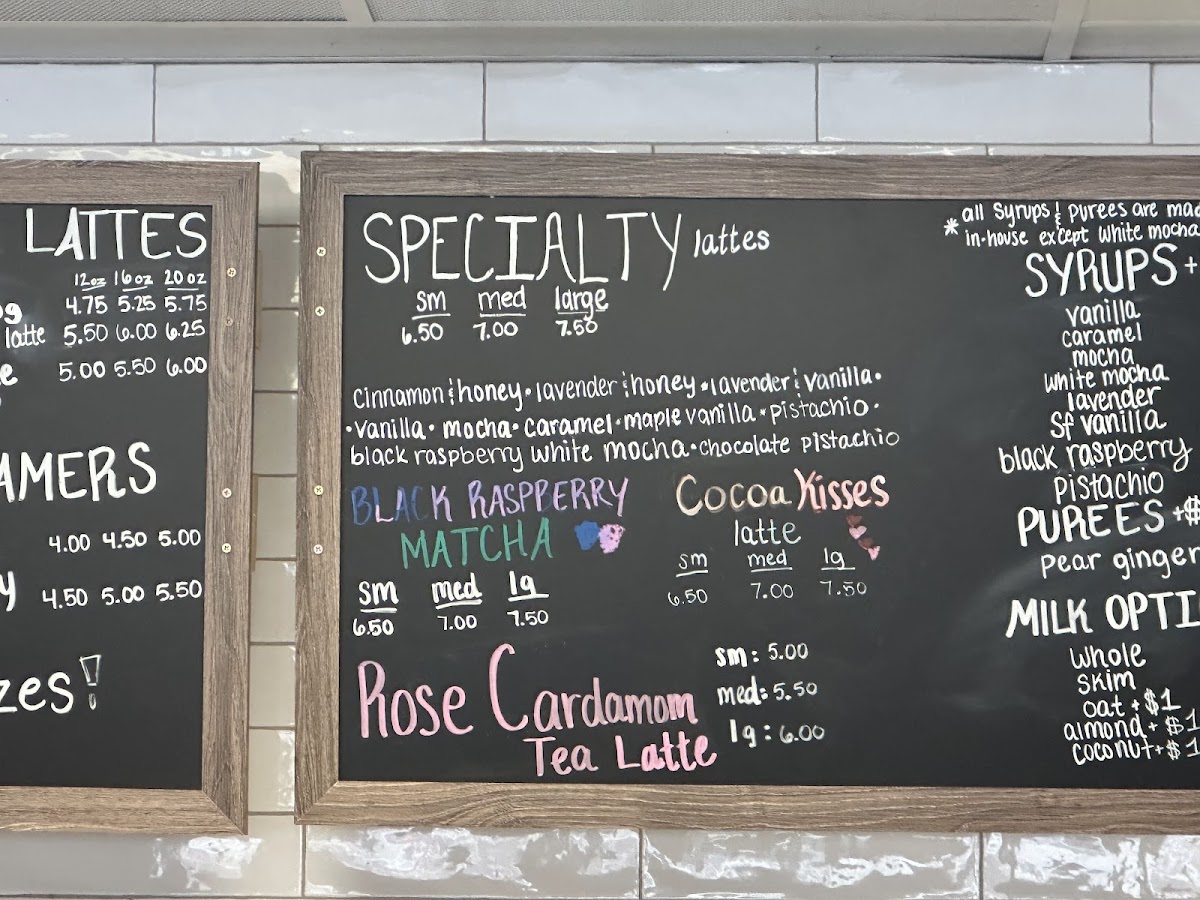 LATTES
12oz 16oz 20oz
4.75 5.25 5.75
latte 5.50 6.00 6.25
5.00 5.50 6.00
AMERS
4.00 4.50 5.00
y 4.50 5.00 5.50
zes!
SPECIALTY lattes
sm med large
6.50 7.00 7.50
cinnamon & honey • lavender & honey • lavender & vanilla •
• vanilla • mocha • caramel • maple vanilla • pistachio •
black raspberry white mocha • chocolate pistachio
BLACK RASPBERRY
MATCHA
sm med lg
6.50 7.00 7.50
Cocoa Kisses
latte
sm med lg
6.50 7.00 7.50
Rose Cardamom
Tea Latte
sm: 5.00
med: 5.50
lg: 6.00
* all syrups & purees are mad
in-house except white mocha
SYRUPS +
vanilla
caramel
mocha
white mocha
lavender
sf vanilla
black raspberry
pistachio
PUREES +$
pear ginger
MILK OPTI
whole
skim
oat + $1
almond + $1
coconut + $1